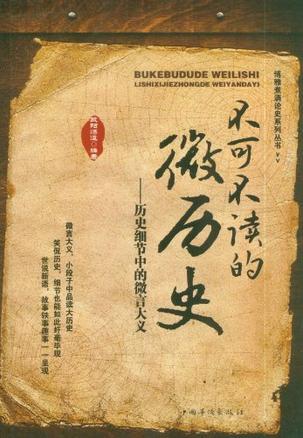 BUKEBUDUDE WEILISHI
LISHIXIJIEZHONGDE WEIYANDAYI
博雅煮酒论史系列丛书
不可不读的
微历史
——历史细节中的微言大义
编著
微言大义，小段子中品读大历史
笑侃历史，细节也能如此纤毫毕现
世说新语，故事轶事趣事一一呈现
中国华侨出版社